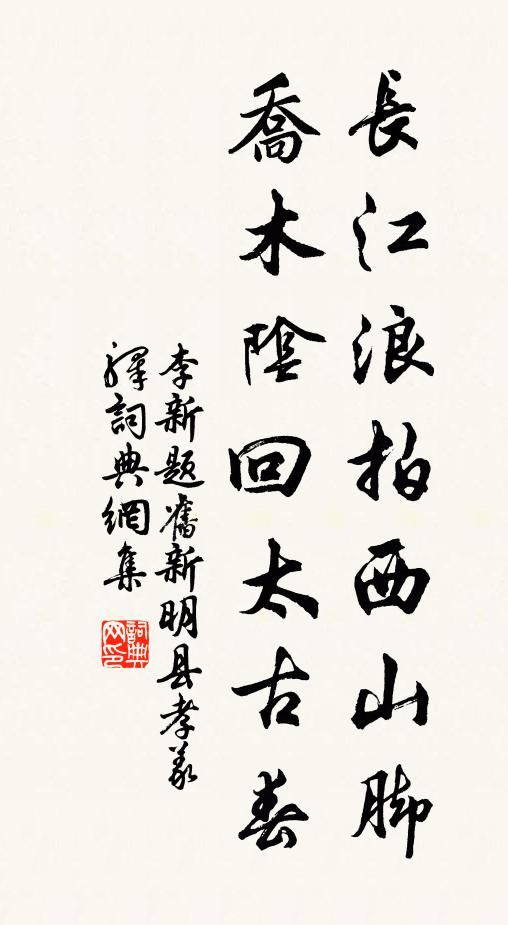 長江浪拍西山脚
喬木陰回太古春
李新题舊新明县孝義
驛詞典網集
詞典
网印